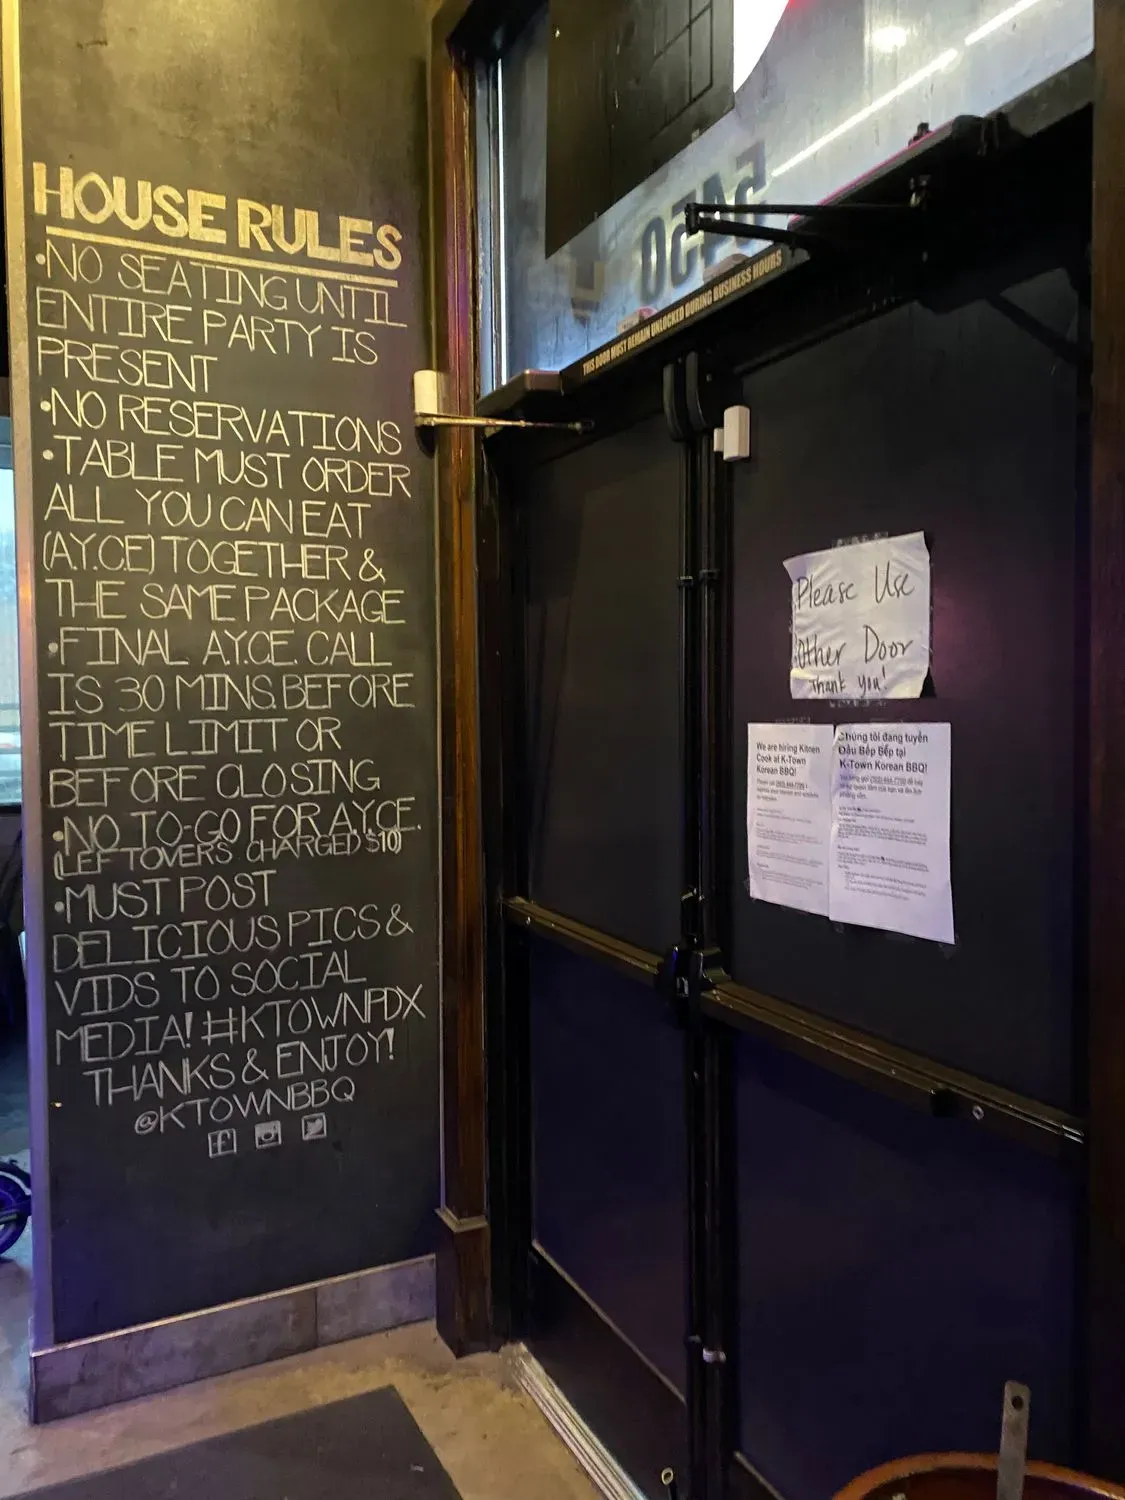 HOUSE RULES
•NO SEATING UNTIL
ENTIRE PARTY IS
PRESENT
•NO RESERVATIONS
•TABLE MUST ORDER
ALL YOU CAN EAT
(A.Y.C.E) TOGETHER &
THE SAME PACKAGE
•FINAL A.Y.C.E. CALL
IS 30 MINS. BEFORE
TIME LIMIT OR
BEFORE CLOSING
•NO TO-GO FOR A.Y.C.E.
(LEFTOVERS CHARGED $10)
•MUST POST
DELICIOUS PICS &
VIDS TO SOCIAL
MEDIA! #KTOWNPDX
THANKS & ENJOY!
@KTOWNBBQ
5450
THIS DOOR MUST REMAIN UNLOCKED DURING BUSINESS HOURS
Please Use
Other Door
Thank you!
We are hiring Kitchen
Cook at K-Town
Korean BBQ!
Chúng tôi đang tuyển
Đầu Bếp Bếp tại
K-Town Korean BBQ!